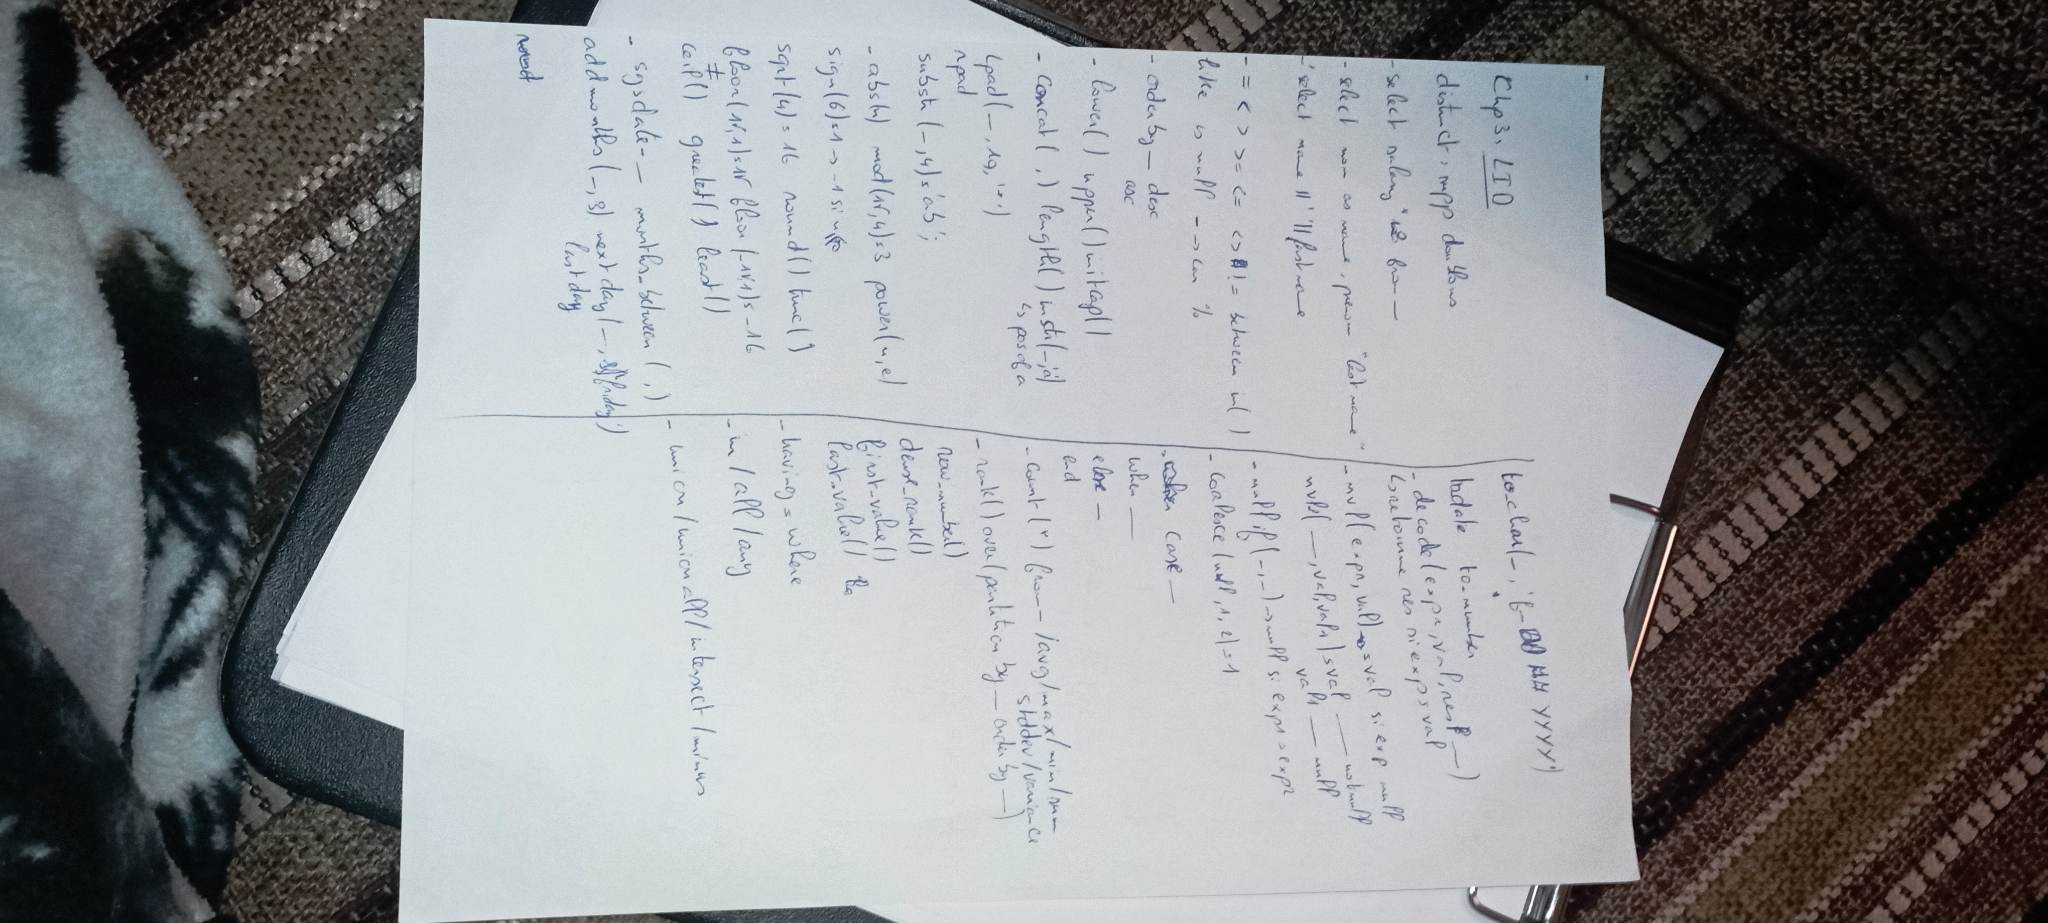 Chp3. LID
distinct, supp doublons
- select salary * 12 from —
- select nom as name, prenom "last name"
- select name || ' ' || firstname
- = < > >= <= <> != between in()
like is null --> car %
- order by — desc
asc
- lower() upper() initcap()
- concat( , ) length() instr(–,'a')
↳ pos of a
lpad(–, 19, '*')
rpad
substr(–, 4) = 'ab';
- abs(n) mod(15,4)=3 power(n,e)
sign(6)=1 → -1 si
sqrt(4)=16 round() trunc()
floor(15,1)=15 floor(-15,1)=-16
≠
ceil() greatest() least()
- sysdate – — months_between( , )
add months(–, 3) next day(–, 'friday')
last day
to-char(–, 'f- MM YYYY')
todate to-number
- decode(expr, val, res1 —)
↳ retourne res si exp = val
- nvl(expr, val) → = val si exp null
nvl2(—, val, val1) = val — not null
val1 — null
- nullif(–, –) → null si exp1 = exp2
- coalesce(null, 1, 2) = 1
case —
when —
else —
end
- count(*) from — /avg/max/min/sum
stddev/variance
- rank() over (partition by — order by —)
row-number()
dense-rank()
first-value()
last-value()
- having = where
- in / all / any
- union / union all / intersect / minus